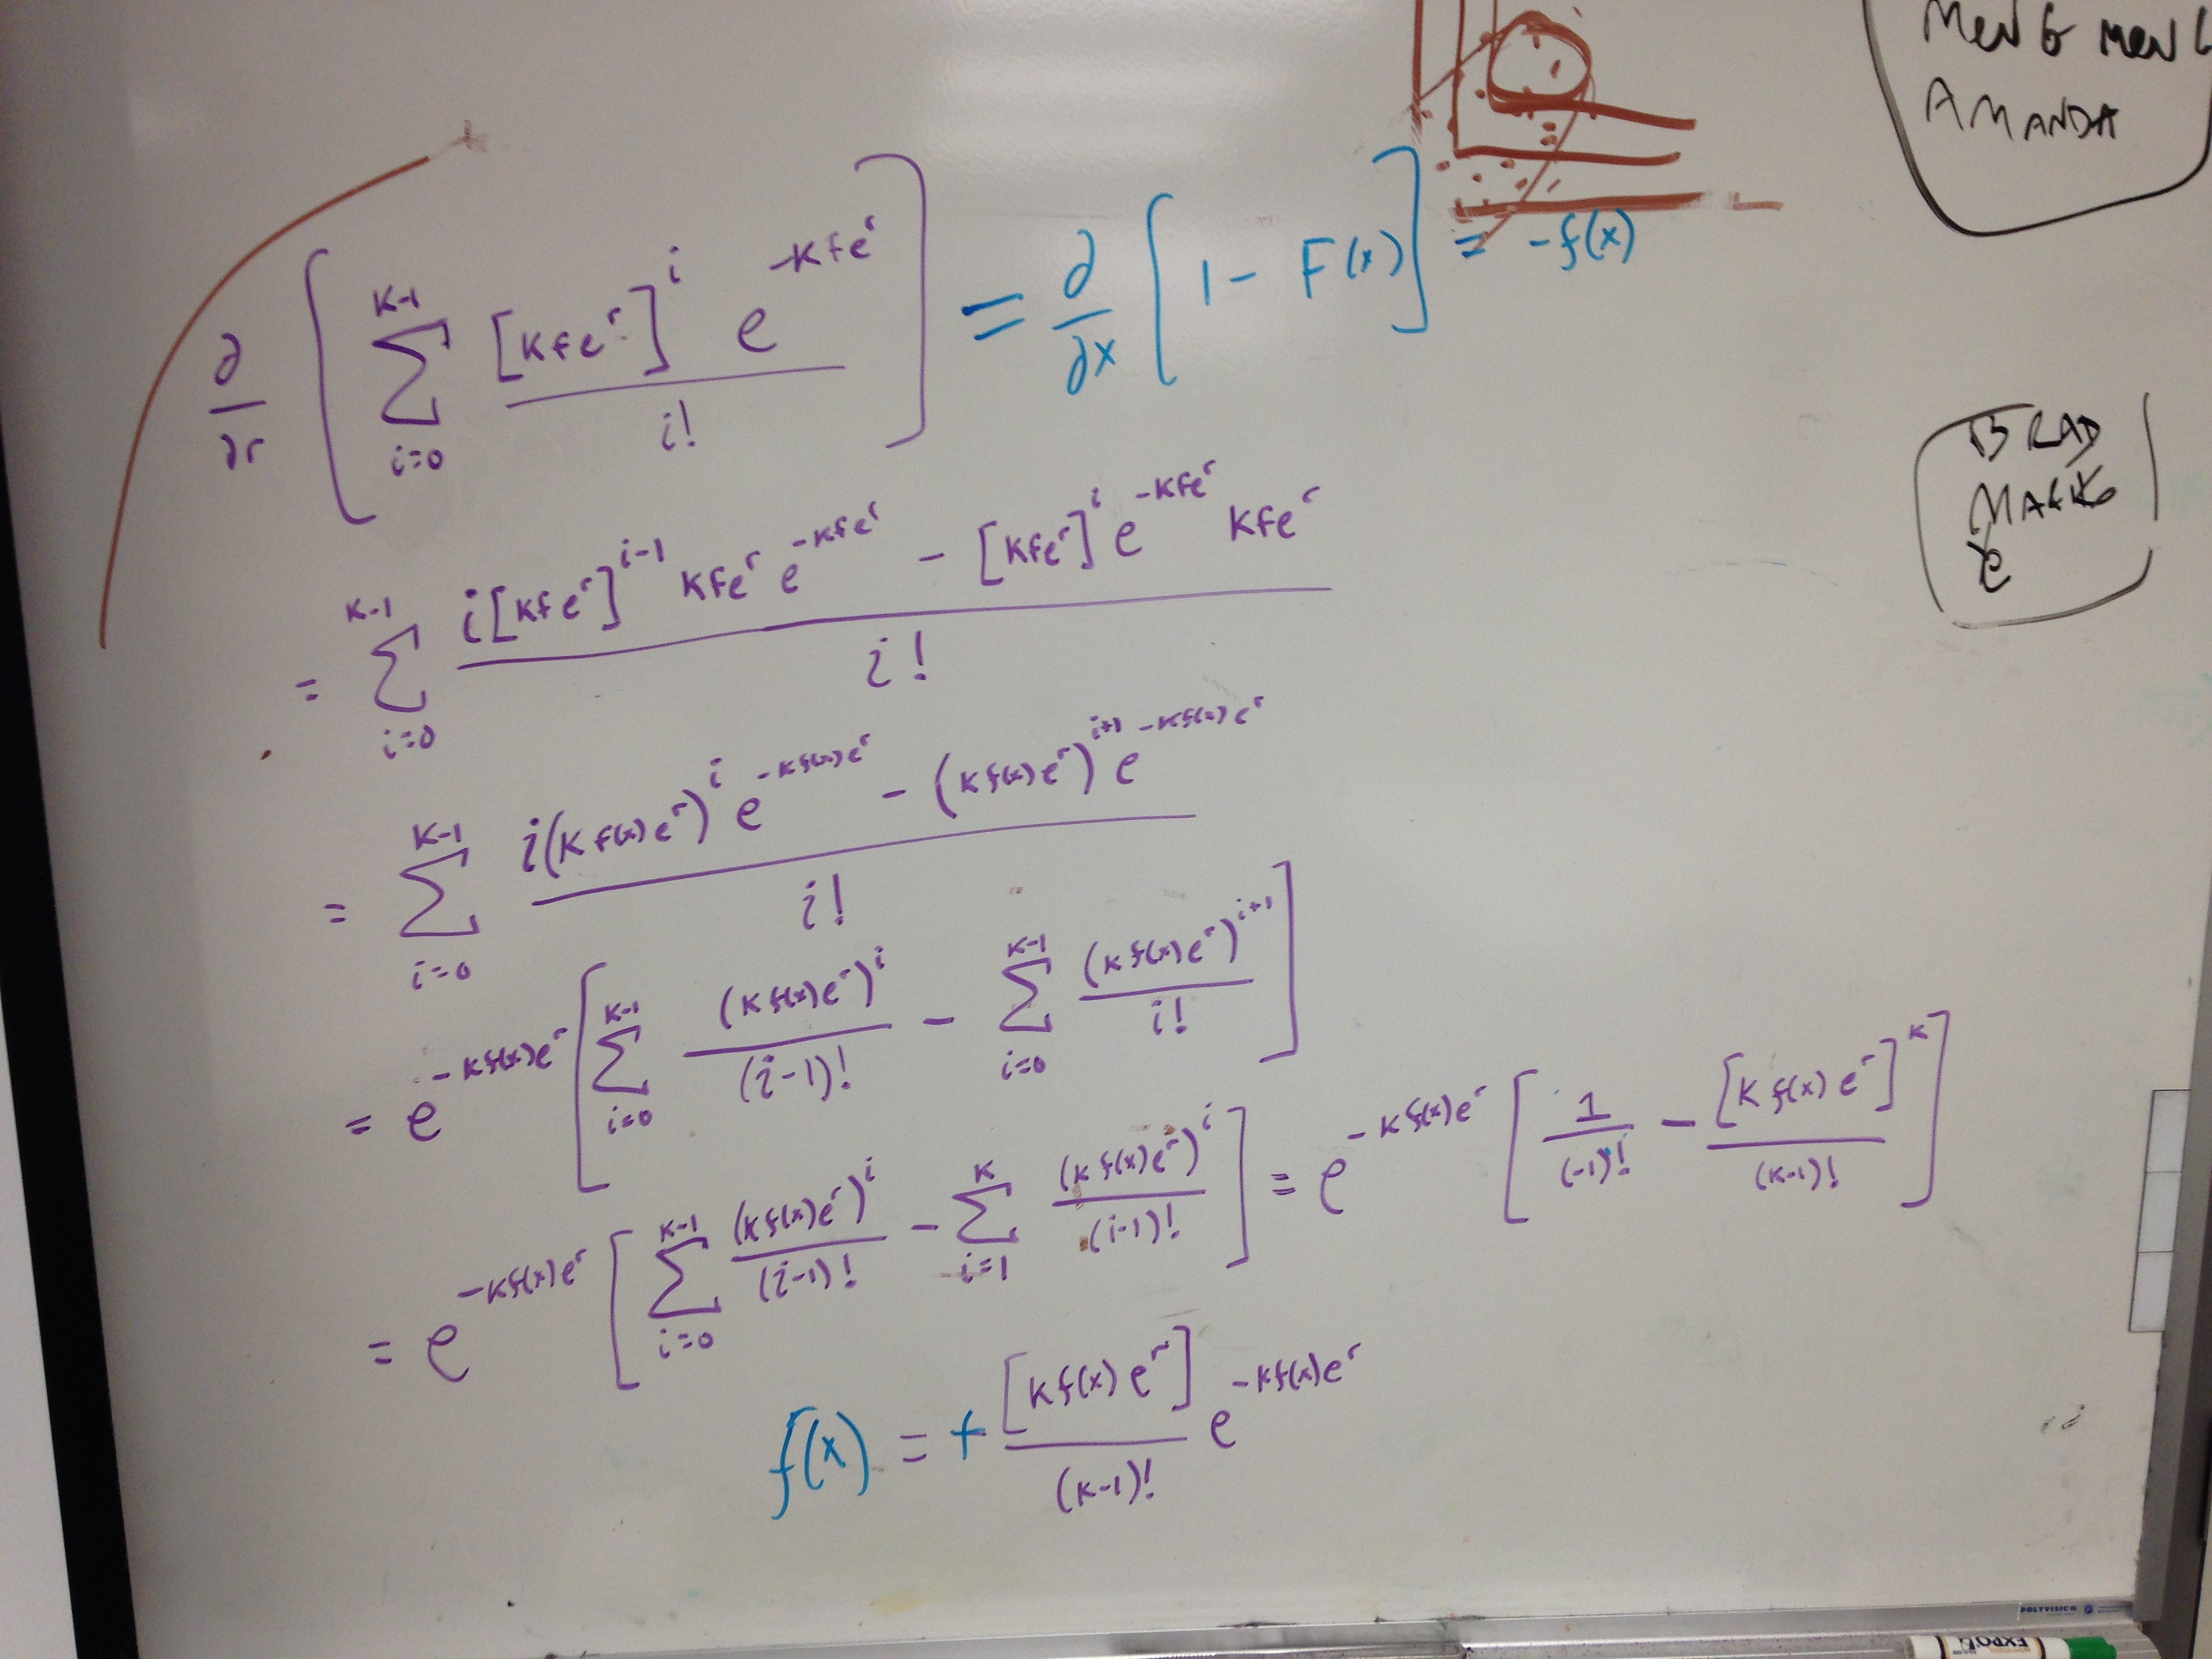 MENG MENG
AMANDA
∂/∂r [ Σ_{i=0}^{K-1} [kfe^r]^i e^{-kfe^r} / i! ] = ∂/∂x [ 1 - F(x) ] = -f(x)
BRAD
= Σ_{i=0}^{K-1} ( i[kfe^r]^{i-1} kfe^r e^{-kfe^r} - [kfe^r]^i e^{-kfe^r} kfe^r ) / i!
= Σ_{i=0}^{K-1} ( i(kf(x)e^r)^i e^{-kf(x)e^r} - (kf(x)e^r)^{i+1} e^{-kf(x)e^r} ) / i!
= e^{-kf(x)e^r} [ Σ_{i=0}^{K-1} (kf(x)e^r)^i / (i-1)! - Σ_{i=0}^{K-1} (kf(x)e^r)^{i+1} / i! ]
= e^{-kf(x)e^r} [ Σ_{i=0}^{K-1} (kf(x)e^r)^i / (i-1)! - Σ_{i=1}^{K} (kf(x)e^r)^i / (i-1)! ] = e^{-kf(x)e^r} [ 1/(-1)! - [kf(x)e^r]^K / (K-1)! ]
f(x) = + [kf(x)e^r] / (K-1)! e^{-kf(x)e^r}
POLYVISION
EXPO